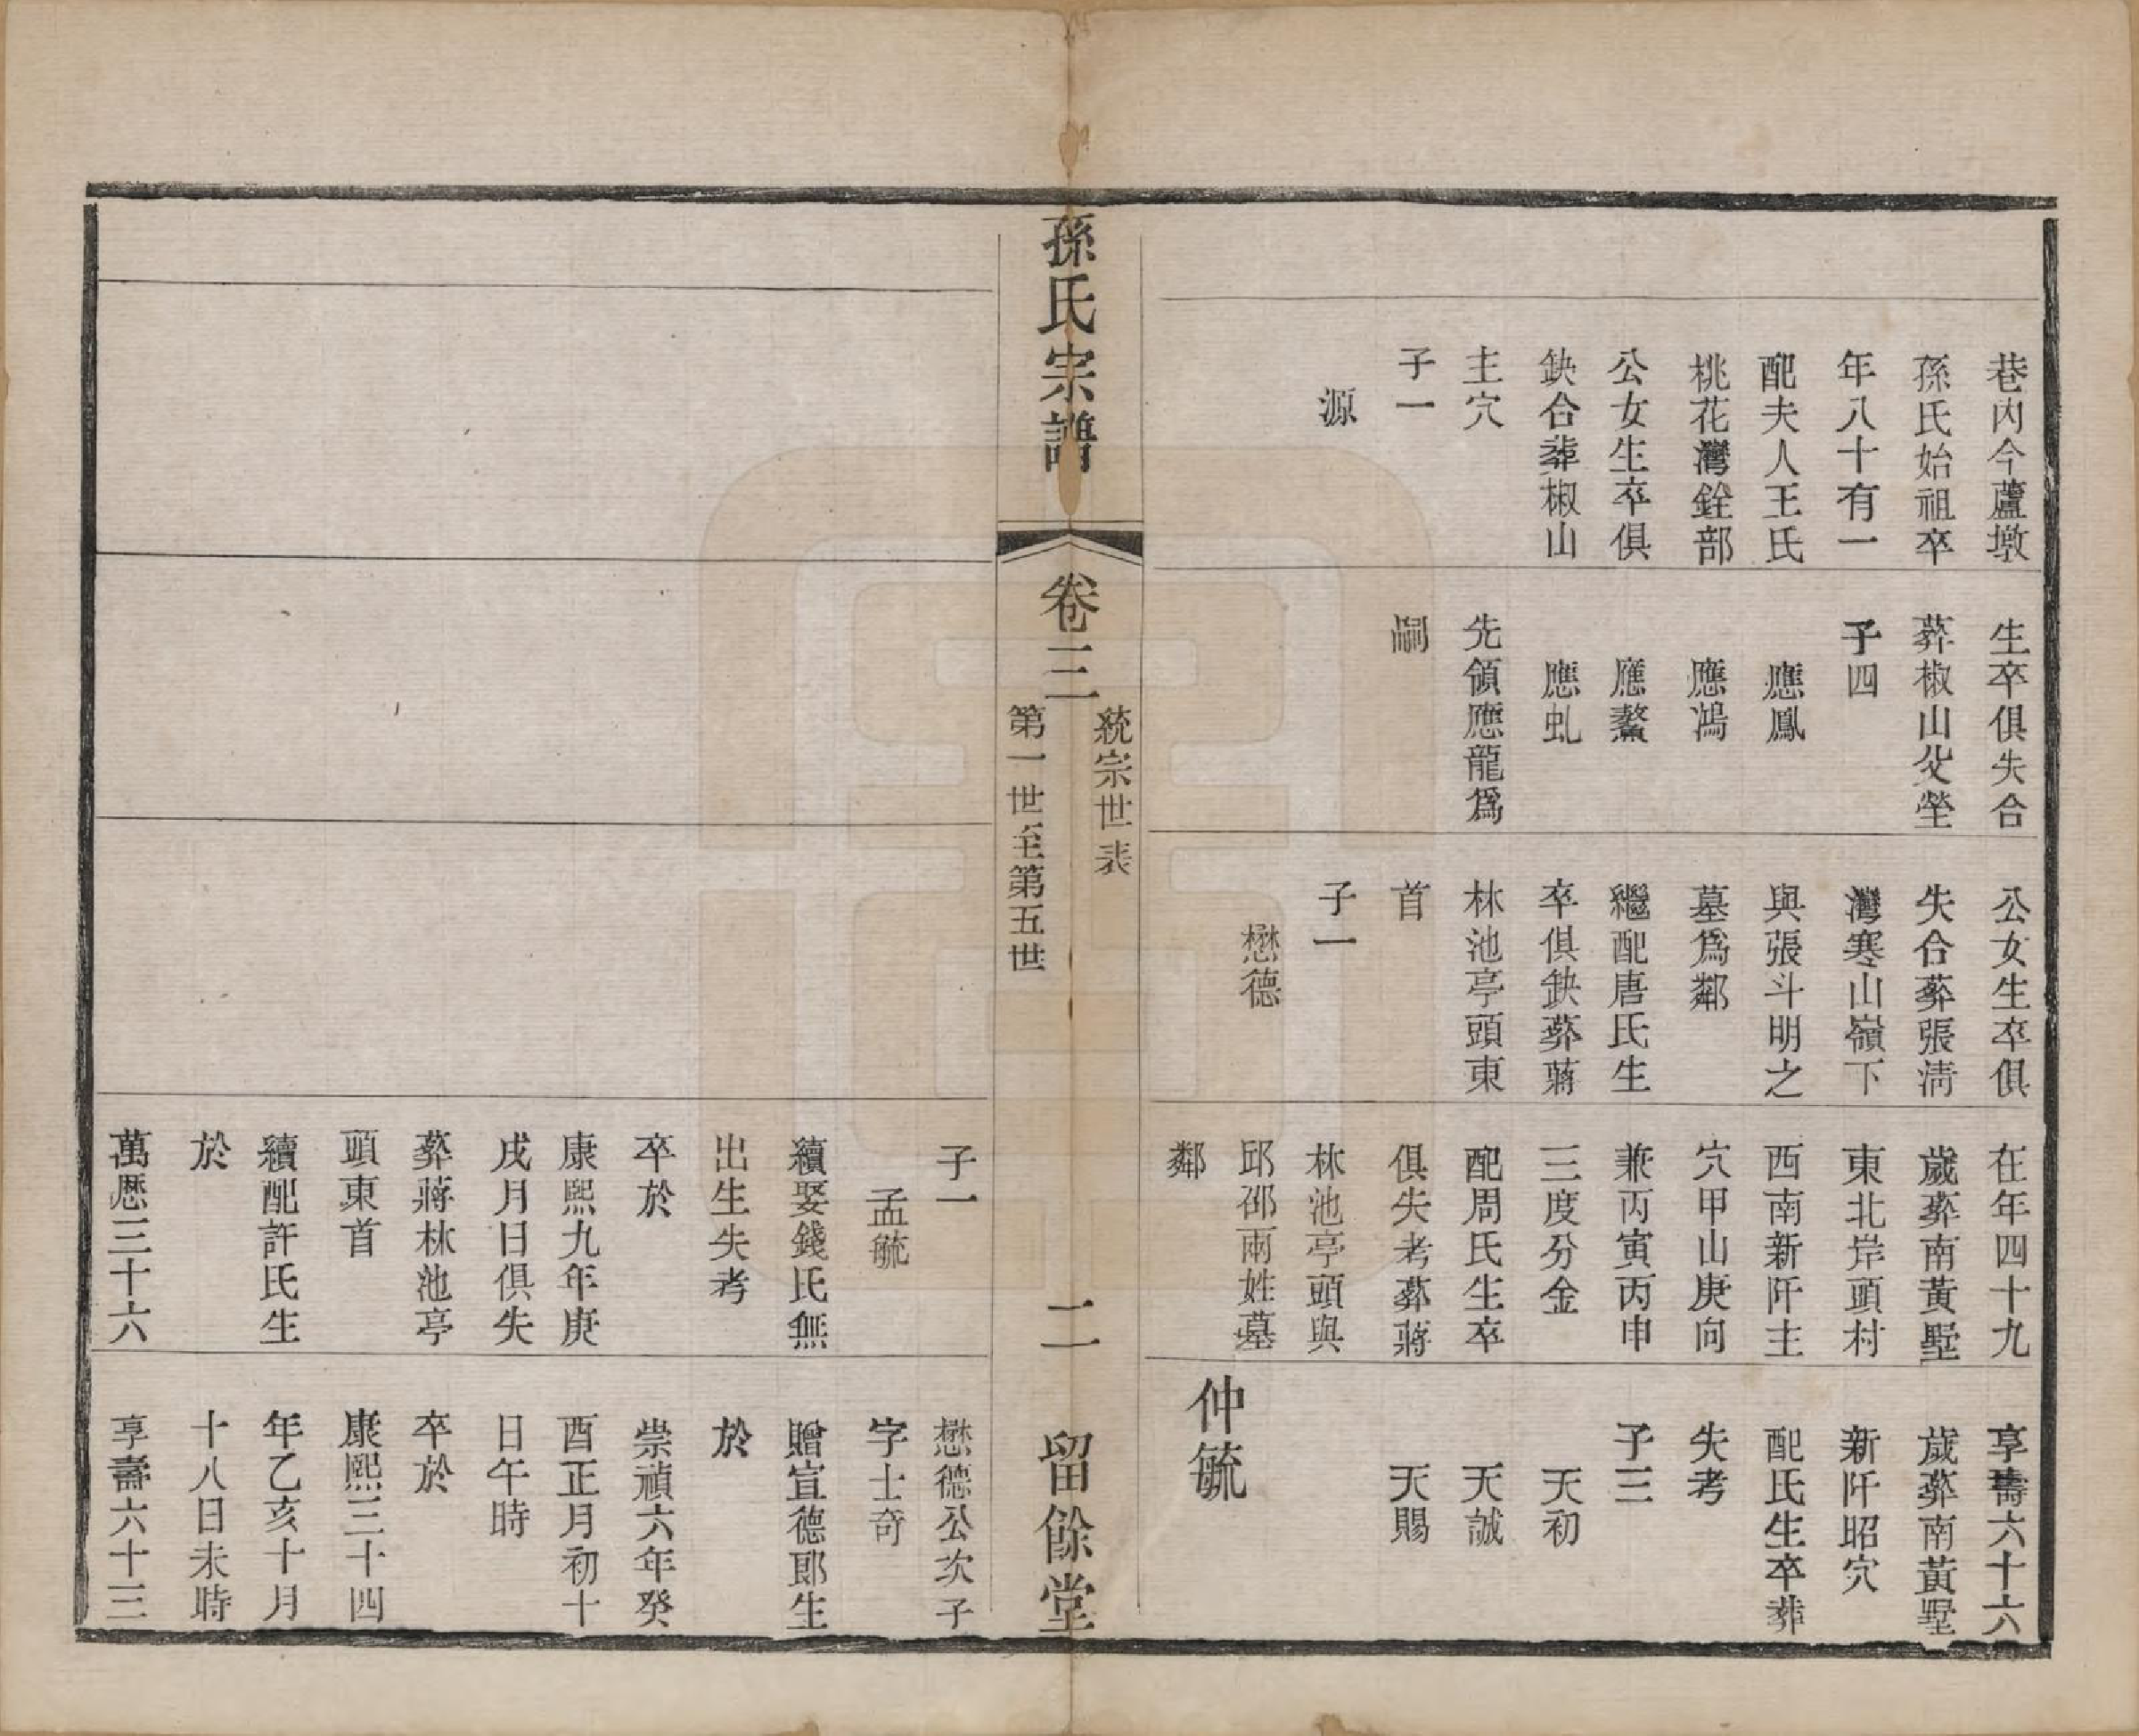 巷內今蘆墩
孫氏始祖卒
年八十有一
配夫人王氏
桃花灣銓部
公女生卒俱
缺合葬椒山
主穴
子一
源
生卒俱失合
葬椒山父塋
子四
應鳳
應鴻
應鰲
應虬
先領應龍爲
嗣
公女生卒俱
失合葬張清
灣寒山嶺下
與張斗明之
墓爲鄰
繼配唐氏生
卒俱缺葬蔣
林池亭頭東
首
子一
懋德
在年四十九
歲葬南黃墅
東北岸頭村
西南新阡主
穴甲山庚向
兼丙寅丙申
三度分金
配周氏生卒
俱失考葬蔣
林池亭頭與
邱邵兩姓墓
鄰
享壽六十六
歲葬南黃墅
新阡昭穴
配氏生卒葬
失考
子三
天初
天誠
天賜
仲毓
孫氏宗譜
卷三
統宗世表
第一世至第五世
二
留餘堂
子一
孟毓
續娶錢氏無
出生失考
卒於
康熙九年庚
戌月日俱失
葬蔣林池亭
頭東首
續配許氏生
於
萬厯三十六
懋德公次子
字士奇
贈宣德郎生
於
崇禎六年癸
酉正月初十
日午時
卒於
康熙三十四
年乙亥十月
十八日未時
享壽六十三